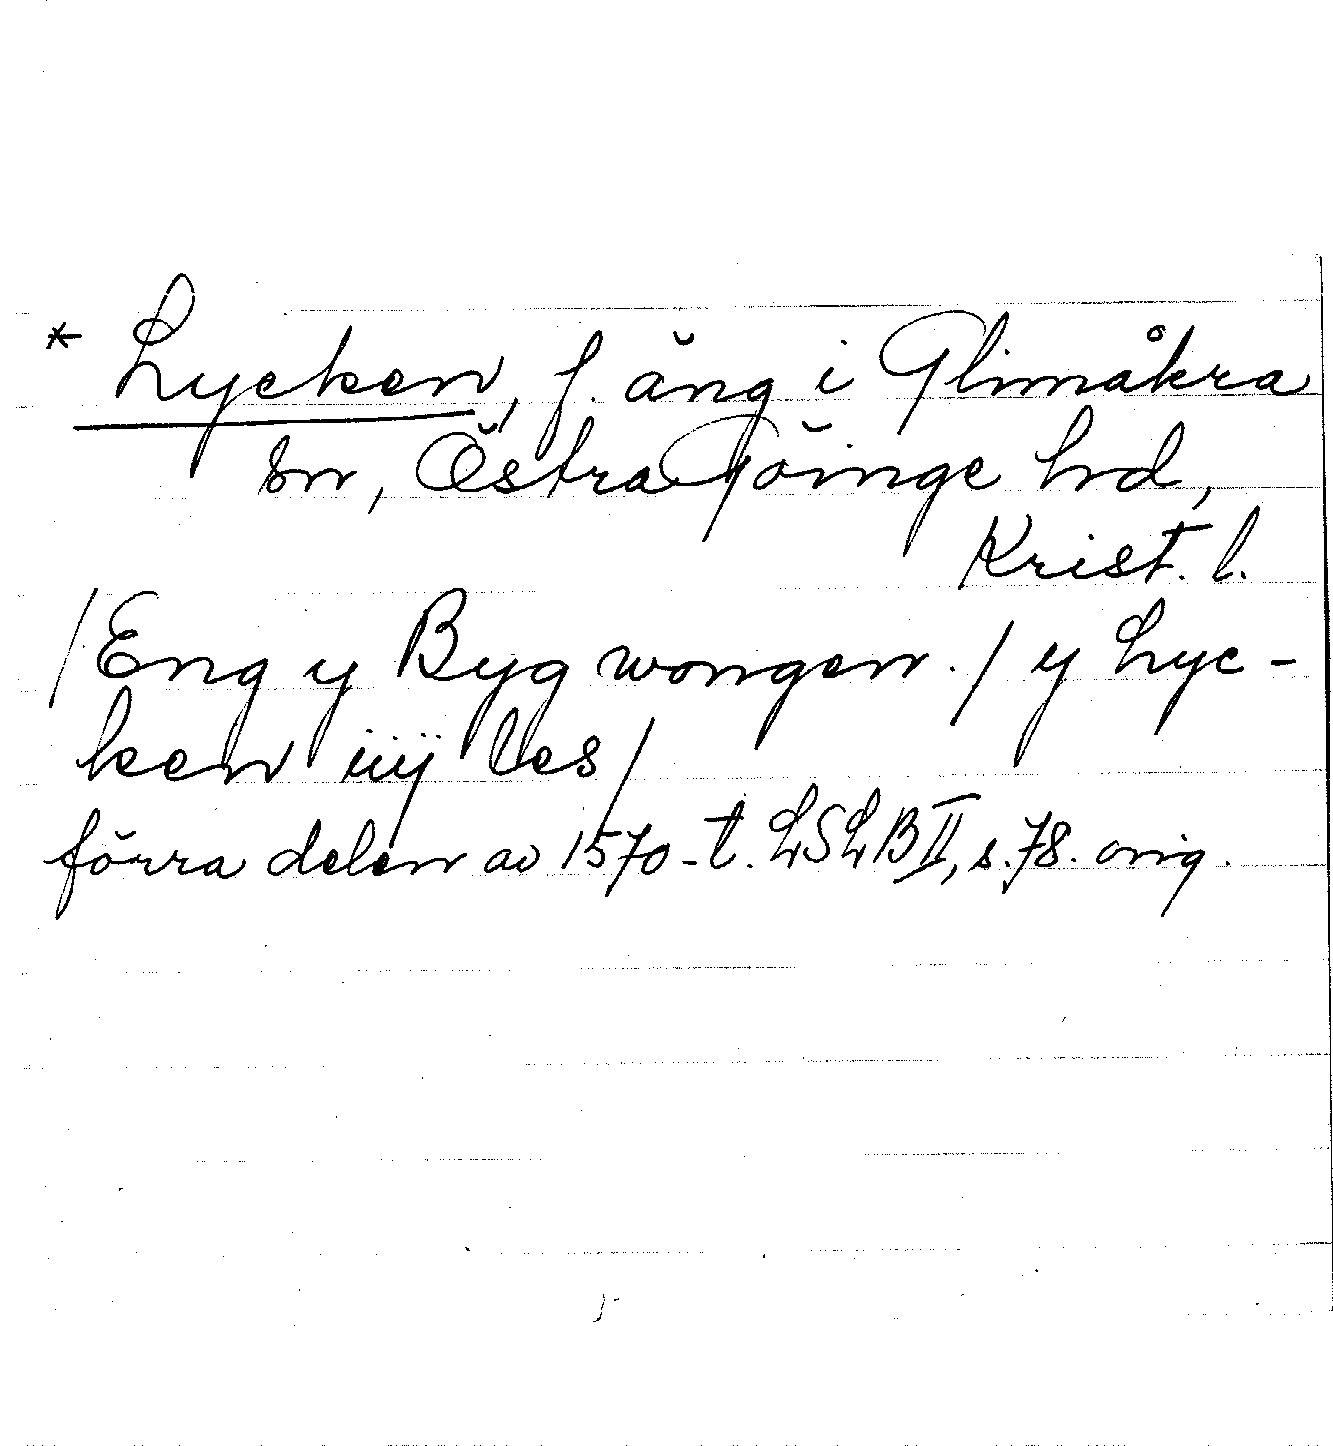 * Lycken, f. äng i Glimåkra
sn, Östra Göinge hd,
Krist. l.
/Eng y Byg wongen./ y Lyc-
ken iiij les/
förra delen av 1570-t. LSLB II, s. 78. orig.